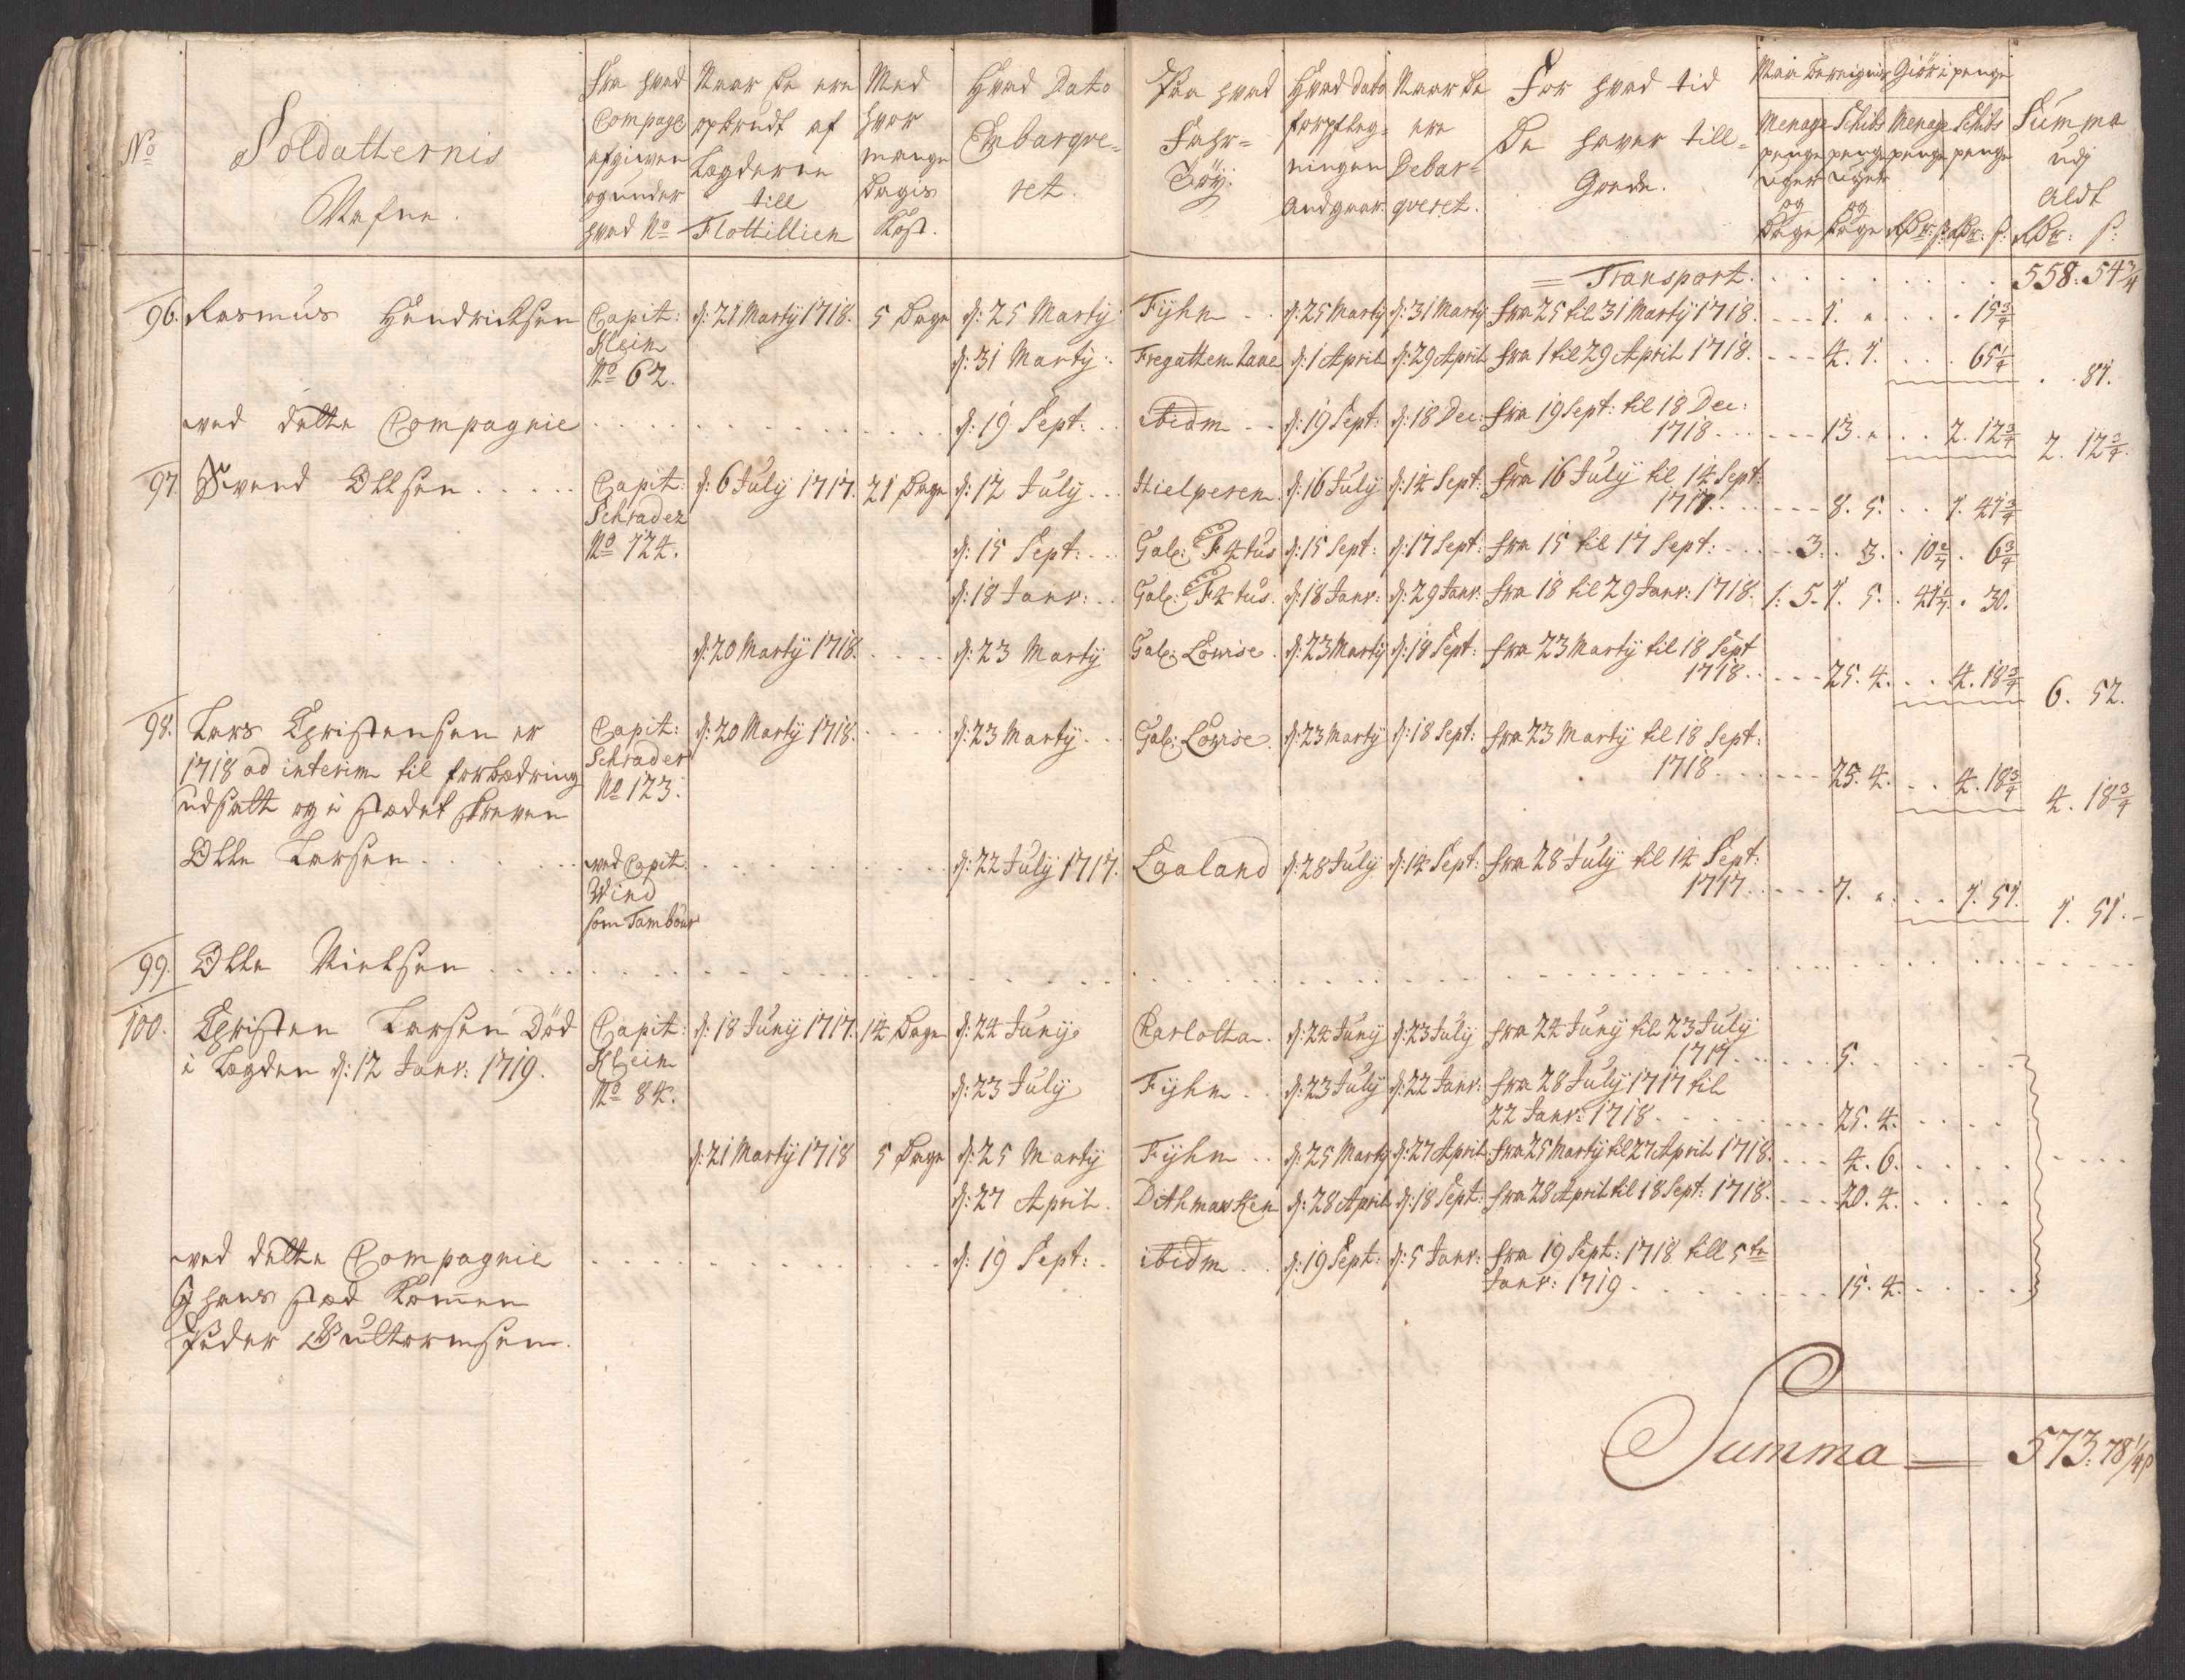 No
Soldatternis Nafne.
Fra hvad Compag: afgiven og under hvad No
Naar De ere opbrudt af Lægderne till Flottillien
Med hvor mange Dagis Kost.
Hvad Dato Embarqveret.
Paa hvad Fahr=Töÿ.
Hvad dato forpflegningen andgaar.
Naar De ere Debarqveret.
For hvad tid De haver till=Gode.
Menage penge uger og Dage
Schibs penge uger og Dage
Menage penge Rdr: s:
Schibs penge Rdr: s:
Summa udj Aldt Rdr: s:
= Transport. 558. 54 3/4
96. Rasmus Hendrichsen Capit: Klein No 62. d: 21 Martÿ 1718. 5 Dage d: 25 Martÿ Fÿhn d: 25 Martÿ d: 31 Martÿ fra 25 til 31 Martÿ 1718. 1. " 15 3/4
d: 31 Martÿ Fregatten Lane d: 1 April d: 29 April fra 1 til 29 April 1718. 4. 1. 65 1/4
81.
ved dette Compagnie d: 19 Sept: ibidm d: 19 Sept: d: 18 Dec: fra 19 Sept: til 18 Dec: 1718. 13. " 2. 12 3/4 2. 12 3/4
97. Svend Ollsen Capit: Schrader No 124. d: 6 Julÿ 1717. 21 Dage d: 12 Julÿ Hielperen d: 16 Julÿ d: 14 Sept: fra 16 Julÿ til 14 Sept: 1717. 8. 5. 1. 41 3/4
d: 15 Sept: Gal: F4tus d: 15 Sept: d: 17 Sept: fra 15 til 17 Sept: 3. 3. 10 2/7 6 3/4
d: 18 Janr: Gal: F4tus d: 18 Janr: d: 29 Janr: fra 18 til 29 Janr: 1718. 1: 5. 1. 5. 41 1/7 30.
d: 20 Martÿ 1718. d: 23 Martÿ Gal: Lowise d: 23 Martÿ d: 18 Sept: fra 23 Martÿ til 18 Sept 1718. 25. 4. 4. 18 3/4 6. 52.
98. Lars Christensen er Capit: Schrader No 123. d: 20 Martÿ 1718. d: 23 Martÿ Gal: Lowise d: 23 Martÿ d: 18 Sept: fra 23 Martÿ til 18 Sept: 1718. 25. 4. 4. 18 3/4 4. 18 3/4
1718 ad interim til forbædring
udsatt og i stædet skreven
Olle Larsen ved Capit: Wind som Tambour d: 22 Julÿ 1717. Laaland d: 28 Julÿ d: 14 Sept: fra 28 Julÿ til 14 Sept: 1717. 7. " 1. 51. 1. 51.
99. Olle Nielsen
100. Christen Larsen Död Capit: Klein No 84. d: 18 Junÿ 1717. 14 Dage d: 24 Junÿ Charlotta d: 24 Junÿ d: 23 Julÿ fra 24 Junÿ til 23 Julÿ 1717. 5.
i Lægden d: 12 Janr: 1719.
d: 23 Julÿ Fÿhn d: 23 Julÿ d: 22 Janr: fra 28 Julÿ 1717 til 22 Janr: 1718. 25. 4.
d: 21 Martÿ 1718 5 Dage d: 25 Martÿ Fÿhn d: 25 Martÿ d: 27 April fra 25 Martÿ til 27 April 1718. 4. 6.
d: 27 April. Dithmarsken d: 28 April d: 18 Sept: fra 28 April til 18 Sept: 1718. 20. 4.
ved dette Compagnie d: 19 Sept: ibidm d: 19 Sept: d: 5 Janr: fra 19 Sept: 1718 till 5te Janr: 1719. 15. 4.
J hans stæd kommen
Peder Gultormsen.
Summa = 573. 78 1/4 s